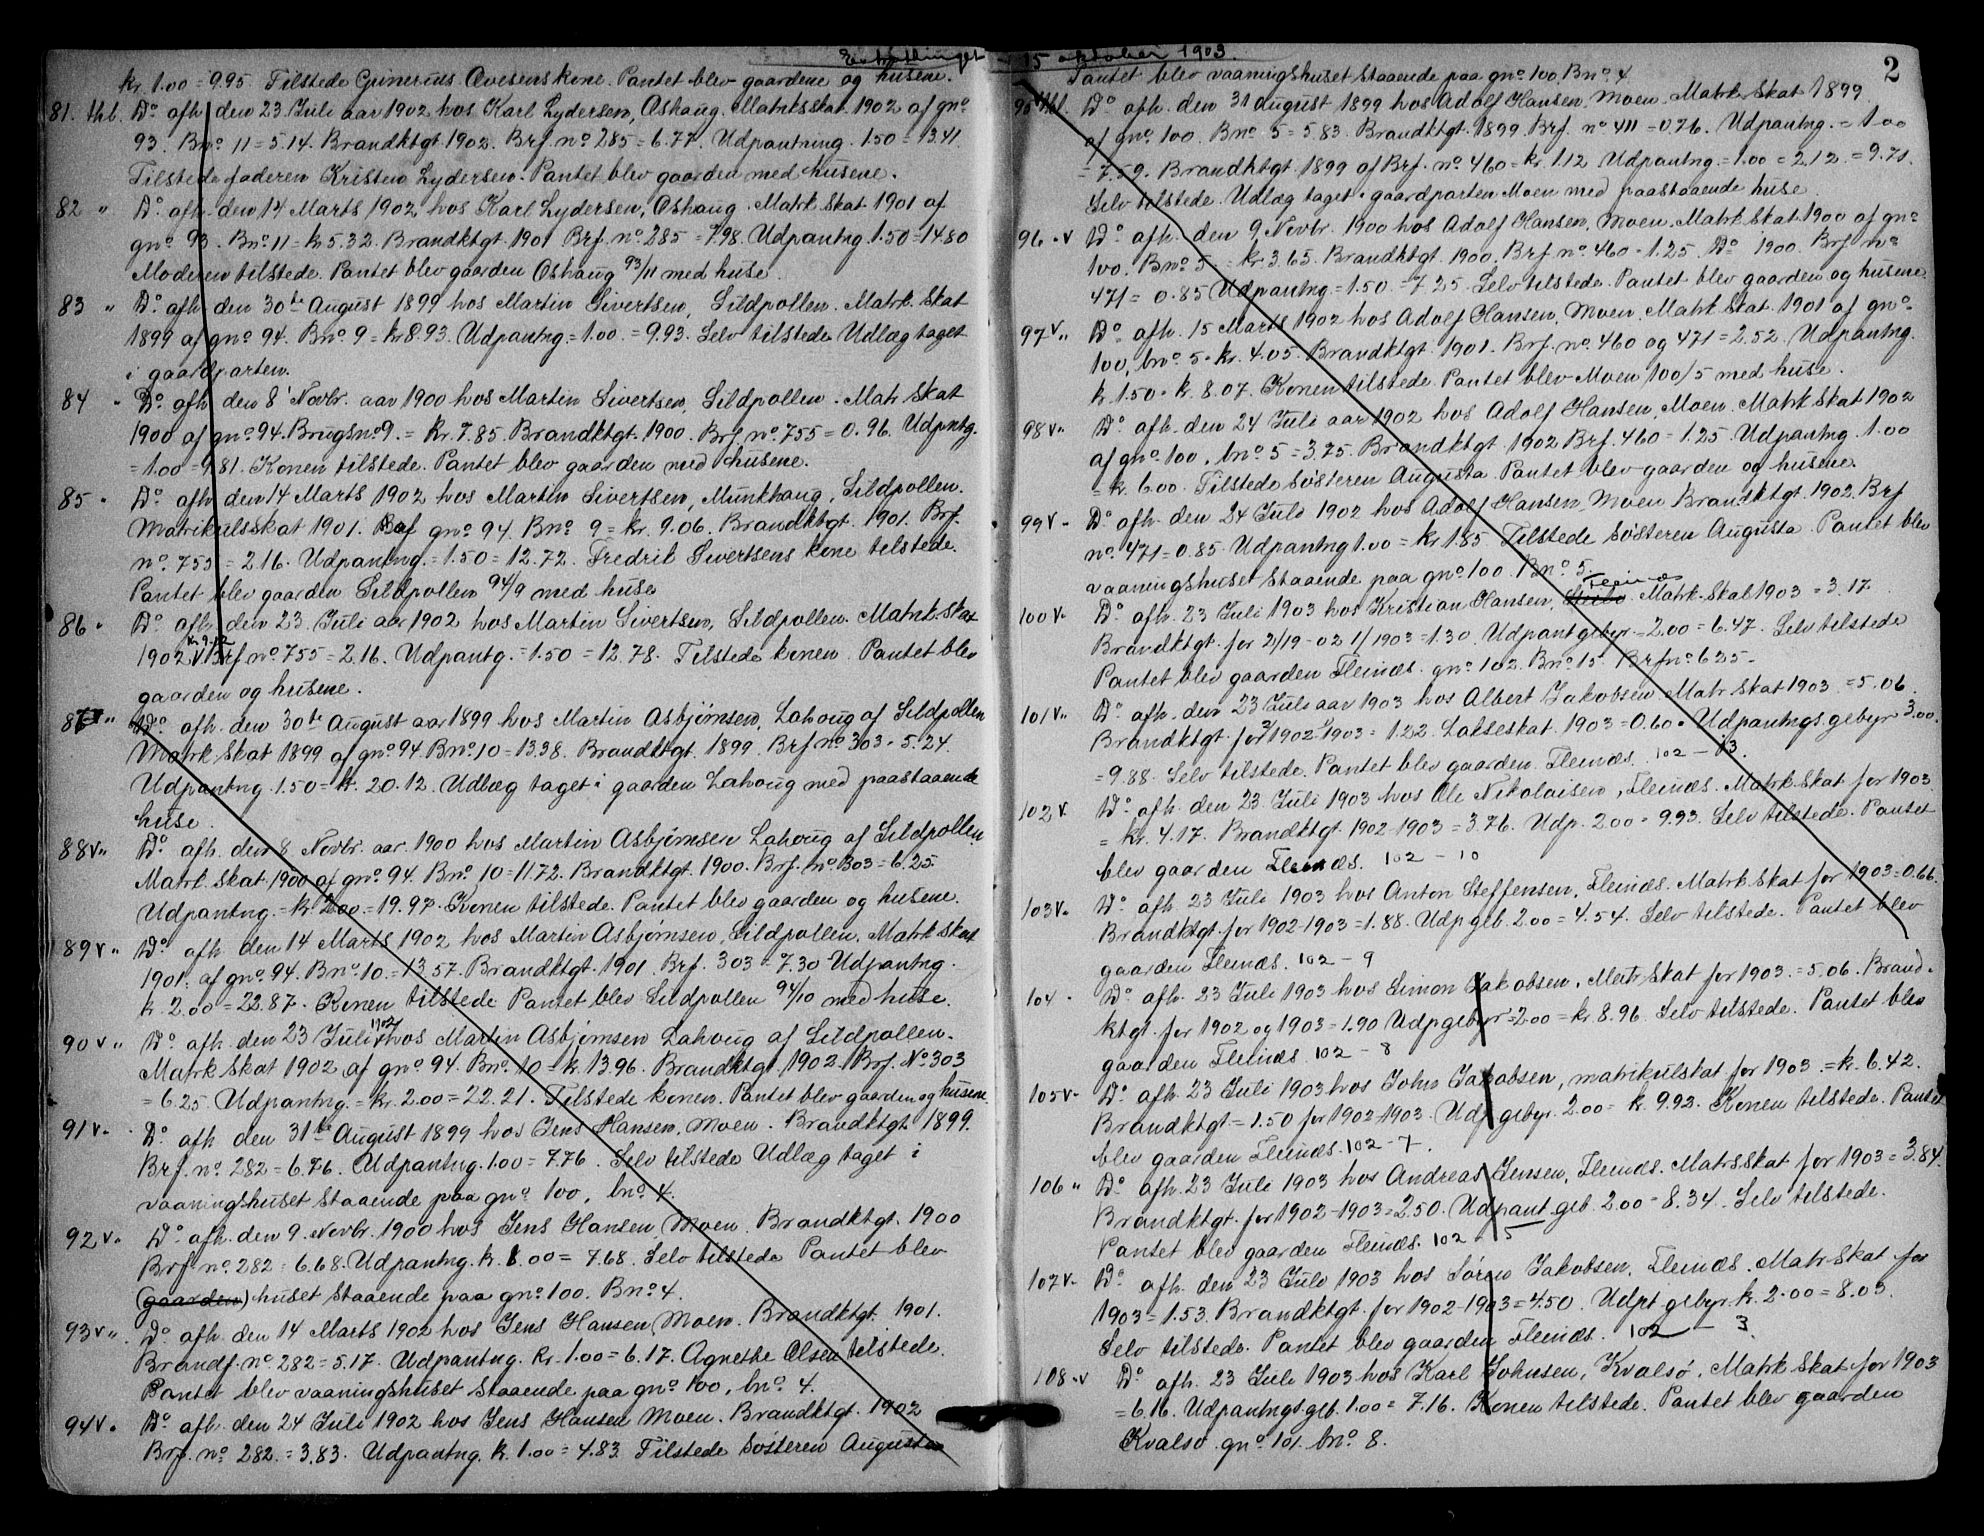 Extrathinget - 15 oktober 1903.
kr. 1.00 = 9.95. Tilstede Gunerius Ovesens kone. Pantet blev gaardene og husene.
81. thl. Do afh. den 23 Juli aar 1902 hos Karl Lydersen, Oshaug. Matriksskat. 1902 af gno
93. Bno 11 = 5.14. Brandktgt 1902. Brf. no 285 = 6.77. Udpantning. 1.50 = 13.41.
Tilstede faderen Kristen Lydersen. Pantet blev gaarden med husene.
82 " Do afh. den 14 Marts 1902 hos Karl Lydersen, Oshaug. Matrk. skat 1901 af
gno 93. Bno 11 = kr 5.32. Brandktgt. 1901 Brf. no 285 = 7.98. Udpantng. 1.50 = 14.80
Moderen tilstede. Pantet blev gaarden Oshaug 93/11 med huse.
83 " Do afh. den 30te August 1899 hos Martin Sivertsen, Sildpollen. Matrk. Skat
1899 af gno 94. Bno 9 = kr 8.93. Udpantng. = 1.00. = 9.93. Selv tilstede Udlæg taget
i gaardparten.
84 " Do afh. den 8' Novbr. aar 1900 hos Martin Sivertsen, Sildpollen. Matr. Skat
1900 af gno 94. Brugsno 9. = kr. 7.85. Brandktgt. 1900. Brf. no 755 = 0.96. Udpntg.
= 1.00 = 9.81. Konen tilstede. Pantet blev gaarden med husene.
85 " Do afh. den 14 Marts 1902 hos Martin Sivertsen, Munkhaug, Sildpollen.
Matrikulsskat 1901. af gno 94. Bno 9 = kr. 9.06. Brandktgt. 1901. Brf.
no. 755 = 2.16. Udpantng. = 1.50 = 12.72. Fredrik Sivertsens kone tilstede.
Pantet blev gaarden Sildpollen 94/9 med huse
86 " Do afh. den 23. Juli aar 1902 hos Martin Sivertsen, Sildpollen. Matrk. skat
1902 kr 9.12 Brf. no 755 = 2.16. Udpantg. = 1.50 = 12.78. Tilstede konen. Pantet blev
gaarden og husene.
87 " Do afh. den 30te August aar 1899 hos Martin Asbjørnsen, Lahoug af Sildpollen
Matrk skat 1899 af gno 94 Bno 10 = 13.38. Brandktgt. 1899. Brf no 303 = 5.24.
Udpantng. 1.50 = kr. 20.12. Udlæg taget i gaarden Lahoug med paastaaende
huse.
88 v " Do afh. den 8 Novbr. aar. 1900 hos Martin Asbjørnsen Lahoug af Sildpollen.
Matrk. Skat 1900 af gno 94. Bno 10 = 11.72. Brandktgt. 1900. Brf. no 303 = 6.25
Udpantng. = kr 2.00 = 19.97. Konen tilstede. Pantet blev gaarden og husene.
89 v " Do afh. den 14 Marts 1902 hos Martin Asbjørnsen, Sildpollen. Matrk Skat
1901. af gno 94. Bno 10. = 13.57. Brandktgt. 1901. Brf. 303 = 7.30 Udpantng.
k. 2.00 = 22.87. Konen tilstede Pantet blev Sildpollen 94/10 med huse.
90 v " Do afh. den 23 Juli 1902 hos Martin Asbjørnsen Lahoug af Sildpollen.
Matrk Skat 1902 af gno 94. Bno 10 = k. 13.96. Brandktgt. 1902. Brf. No 303
= 6.25. Udpantng. = kr. 2.00 = 22.21. Tilstede konen. Pantet blev gaarden og husene.
91 v " Do afh den 31te August 1899 hos Jens Hansen, Moen. Brandktgt. 1899.
Brf. no. 282 = 6.76. Udpantng. 1.00 = 7.76. Selv tilstede Udlæg taget i
vaaningshuset staaende paa gno 100, bno 4.
92 v " Do afh. den 9. Novbr. 1900 hos Jens Hansen, Moen. Brandktgt. 1900
Brf no. 282 = 6.68. Udpantng. k. 1.00 = 7.68. Selv tilstede Pantet blev
(gaarden) huset staaende paa gno 100. Bno 4.
93 v " Do afh. den 14 Marts 1902 hos Jens Hansen, Moen. Brandktgt. 1901.
Brandf. no. 282 = 5.17. Udpantng. Kr. 1.00 = 6.17. Agnethe Olsen tilstede.
Pantet blev vaaningshuset staaende paa gno 100, bno 4.
94 v " Do afh. den 24 Juli 1902 hos Jens Hansen Moen. Brandktgt. 1902
Brf. no. 282. = 3.83. Udpantng. k. 1.00 = 4.83. Tilstede søsteren Augusta
2
Pantet blev vaaningshuset staaende paa gno 100 Bno 4
95 thl. Do afh. den 31 August 1899 hos Adolf Hansen, Moen. Matrk. Skat 1899
af gno 100. Bno 5 = 5.83. Brandktgt. 1899. Brf. no 411 = 0.76. Udpantng. = 1.00
= 7.59. Brandktgt 1899 af Brf. no. 460 = kr. 1.12 Udpantng. = 1.00 = 2.12. = 9.71.
Selv tilstede. Udlæg taget i gaardparten Moen med paastaaende huse.
96 " v Do afh. den 9 Novbr. 1900 hos Adolf Hansen, Moen. Matrk. Skat. 1900 af gno
100. Bno 5 = kr. 3.65. Brandktgt. 1900. Brf. no. 460 = 1.25. Do 1900. Brf no
471 = 0.85 Udpantng = 1.50 = 7.25. Selv tilstede. Pantet blev gaarden og husene.
97 v " Do afh. 15 Marts 1902 hos Adolf Hansen, Moen. Matrk. Skat. 1901 af gno
100, bno 5 = kr. 4.05. Brandktgt. 1901. Brf. no. 460 og 471 = 2.52. Udpantng.
k. 1.50 = k. 8.07. Konen tilstede. Pantet blev Moen 100/5 med huse.
98 v " Do afh. den 24 Juli aar 1902 hos Adolf Hansen, Moen. Matrk skat 1902
af gno 100, bno 5 = 3.75. Brandktgt. 1902 Brf. 460 = 1.25 Udpantng. 1.00
= k. 6.00. Tilstede søsteren Augusta Pantet blev gaarden og husene.
99 v " Do afh. den 24 Juli 1902 hos Adolf Hansen, Moen Brandktgt. 1902. Brf
no. 471 = 0.85. Udpantng 1.00 = kr 1.85. Tilstede søsteren Augusta. Pantet blev
vaaningshuset staaende paa gno 100. Bno 5.
100 v " Do afh. 23 Juli 1903 hos Kristian Hansen, Fleinæs Matrk. Skat 1903 = 3.17
Brandktgt. for 2/19-02 1/1903 = 1.30. Udpant gebyr = 2.00 = 6.47. Selv tilstede
Pantet blev gaarden Fleinæs. gno 102. Bno 15. Brf no 625.
101 v " Do afh. den 23 Juli aar 1903 hos Albert Jakobsen Matr. Skat 1903. = 5.06.
Brandktgt. for 2/1902 1/1903 = 1.22. Lakseskat. 1903 = 0.60. Udpantngs. gebyr 3.00.
= 9.88. Selv tilstede. Pantet blev gaarden. Fleinæs. 102 - 13.
102 v Do afh. den 23 Juli 1903 hos Ole Nikolaisen, Fleinæs. Matrk. Skat for 1903
= kr. 4.17. Brandktgt. 1902-1903 = 3.76. Udp. 2.00 = 9.93. Selv tilstede. Pantet
blev gaarden Fleinæs. 102 - 10
103 v " Do afh 23 Juli 1903 hos Anton Steffensen, Fleinæs. Matrk Skat for 1903 = 0.66.
Brandktgt. for 1902-1903 = 1.88. Udp. geb. 2.00 = 4.54. Selv tilstede. Pantet blev
gaarden Fleinæs. 102 - 9
104 " Do afh. 23 Juli 1903 hos Simon Jakobsen. Matr. Skat for 1903. = 5.06. Brand-
ktgt. for 1902 og 1903 = 1.90 Udp. gebyr = 2.00 = kr 8.96. Selv tilstede. Pantet blev
gaarden Fleinæs. 102 - 8
105 v " Do afh. 23 Juli 1903 hos John Jakobsen, matrikulskat for 1903. = k. 6.42.
Brandktgt = 1.50 for 1902-1903. Udp. gebyr. 2.00 = k. 9.92. Konen tilstede. Pantet
blev gaarden Fleinæs. 102 - 7.
106 " Do afh. 23 Juli 1903 hos Andreas Jensen, Fleinæs. Matrs. skat for 1903 = 3.84.
Brandktgt. for 1902-1903 = 2.50. Udpant. geb. 2.00 = 8.34. Selv tilstede.
Pantet blev gaarden Fleinæs. 102 - 5
107 v " Do afh. den 23 Juli 1903 hos Søren Jakobsen, Fleinæs. Matr. Skat for
1903 = 1.53. Brandktgt. for 1902-1903 = 4.50. Udpt. gebyr. k. 2.00 = 8.03.
Selv tilstede. Pantet blev gaarden Fleinæs. 102 - 3.
108 " v Do afh. 23 Juli 1903 hos Karl Johnsen, Kvalsø. Matrk. Skat for 1903
= 6.16. Udpantngs. geb. 1.00 = 7.16. Konen tilstede. Pantet blev gaarden
Kvalsø. gno 101. bno 8.